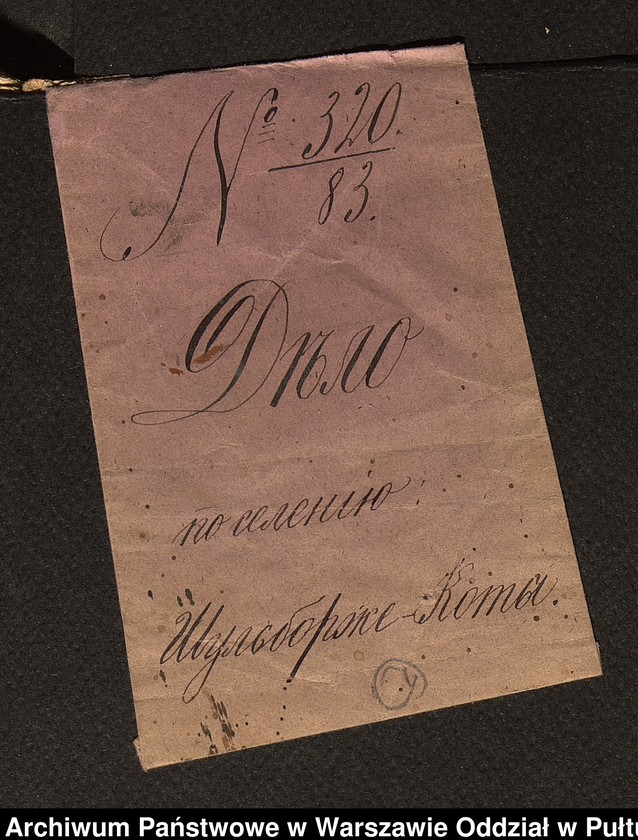 № 320.
83.
Дѣло
по селенію:
Шульборже-Коты.
Archiwum Państwowe w Warszawie Oddział w Pułtu